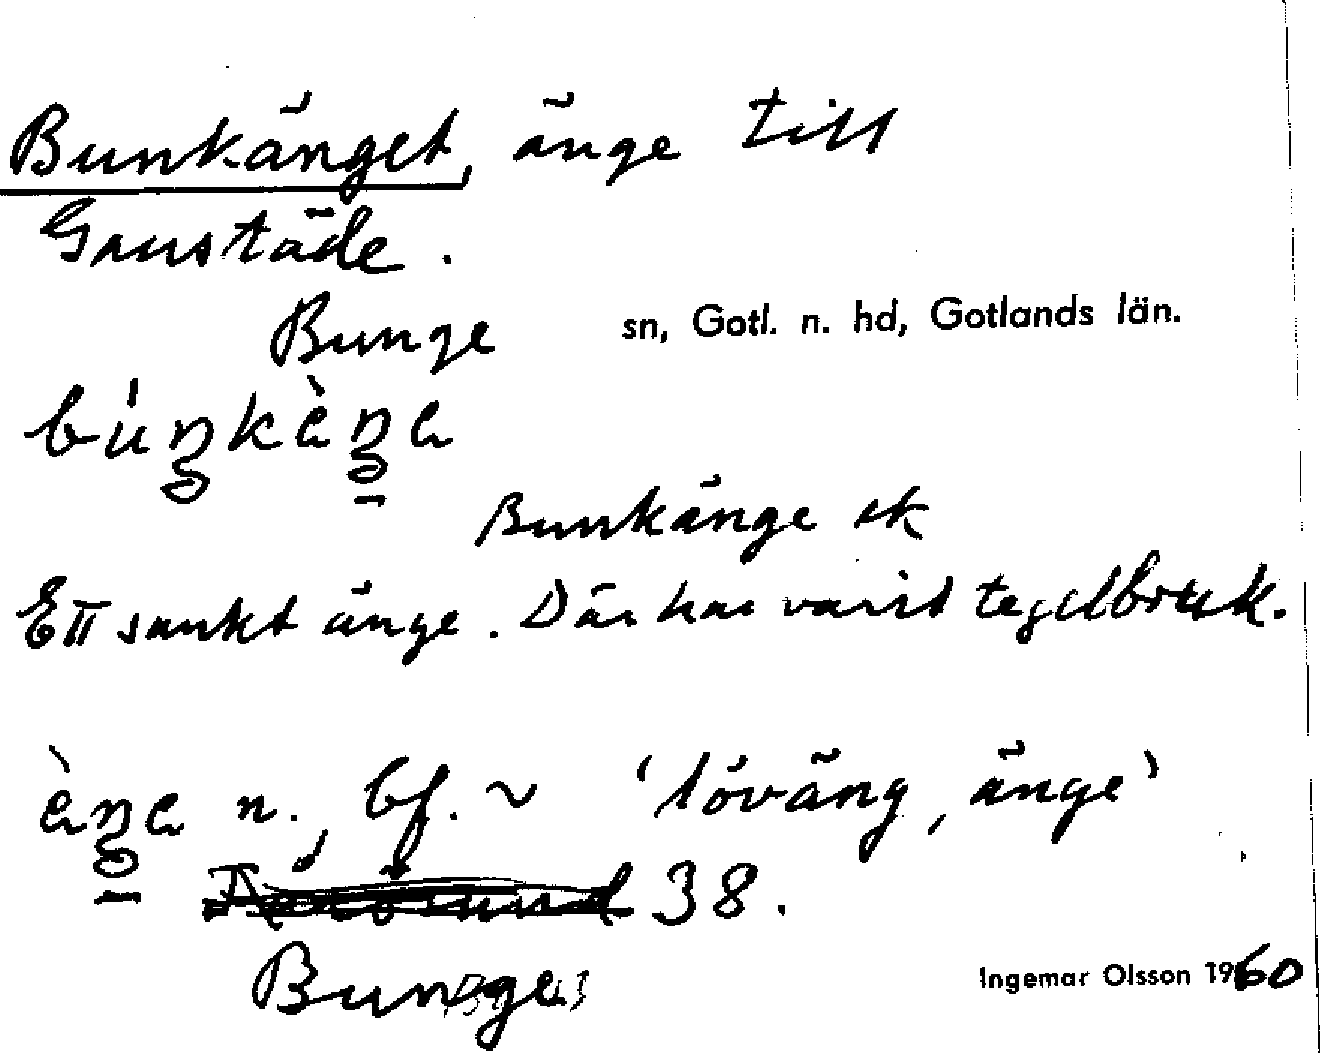 Bunkänget, änge till
Gaustäde.
Bunge sn, Gotl. n. hd, Gotlands län.
bùŋkèŋe
Bunkänge ek
Ett sankt änge. Där har varit tegelbruk.
èŋe n., bf. ~ 'löväng, änge'
38.
Bunge
Ingemar Olsson 1960